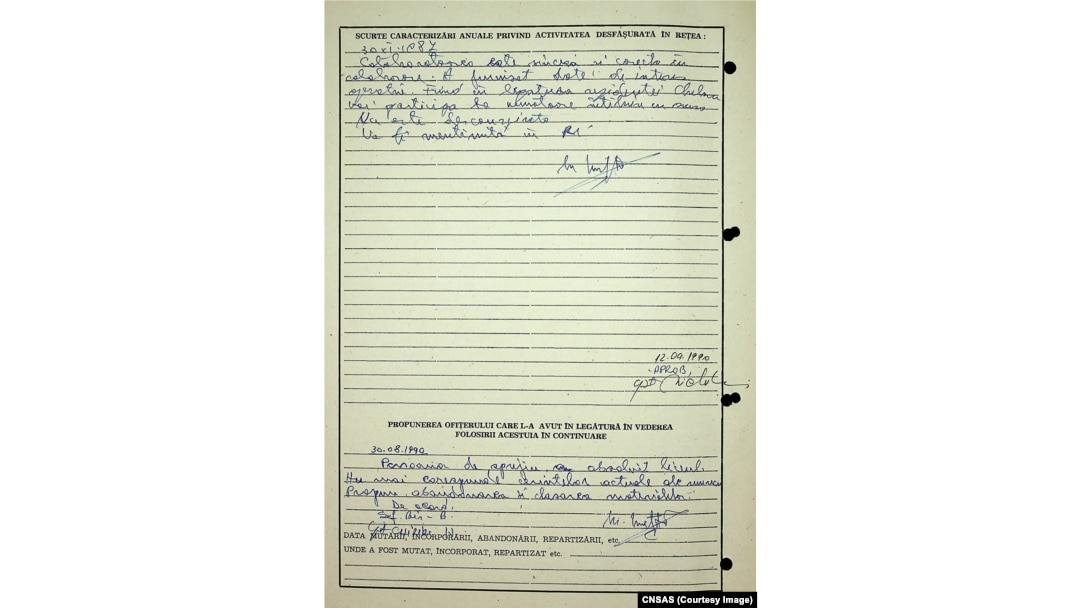 SCURTE CARACTERIZĂRI ANUALE PRIVIND ACTIVITATEA DESFĂȘURATĂ ÎN REȚEA :
30.XI.1987
Colaboratoarea este sinceră și corectă în
colaborare. A furnizat date de interes
operativ. Fiind în legătura rezidentei
va participa la următoare întîlniri cu
Nu este desconspirată
Va fi menținută în
12.09.1990
APROB,
PROPUNEREA OFIȚERULUI CARE L-A AVUT ÎN LEGĂTURĂ ÎN VEDEREA
FOLOSIRII ACESTUIA ÎN CONTINUARE
30.08.1990
Persoana de sprijin a absolvit liceul.
Nu mai corespunde cerințelor actuale ale muncii
Propun abandonarea și clasarea materialelor.
De acord.
DATA MUTĂRII, INCORPORĂRII, ABANDONĂRII, REPARTIZĂRII, etc.
UNDE A FOST MUTAT, ÎNCORPORAT, REPARTIZAT etc.
CNSAS (Courtesy Image)